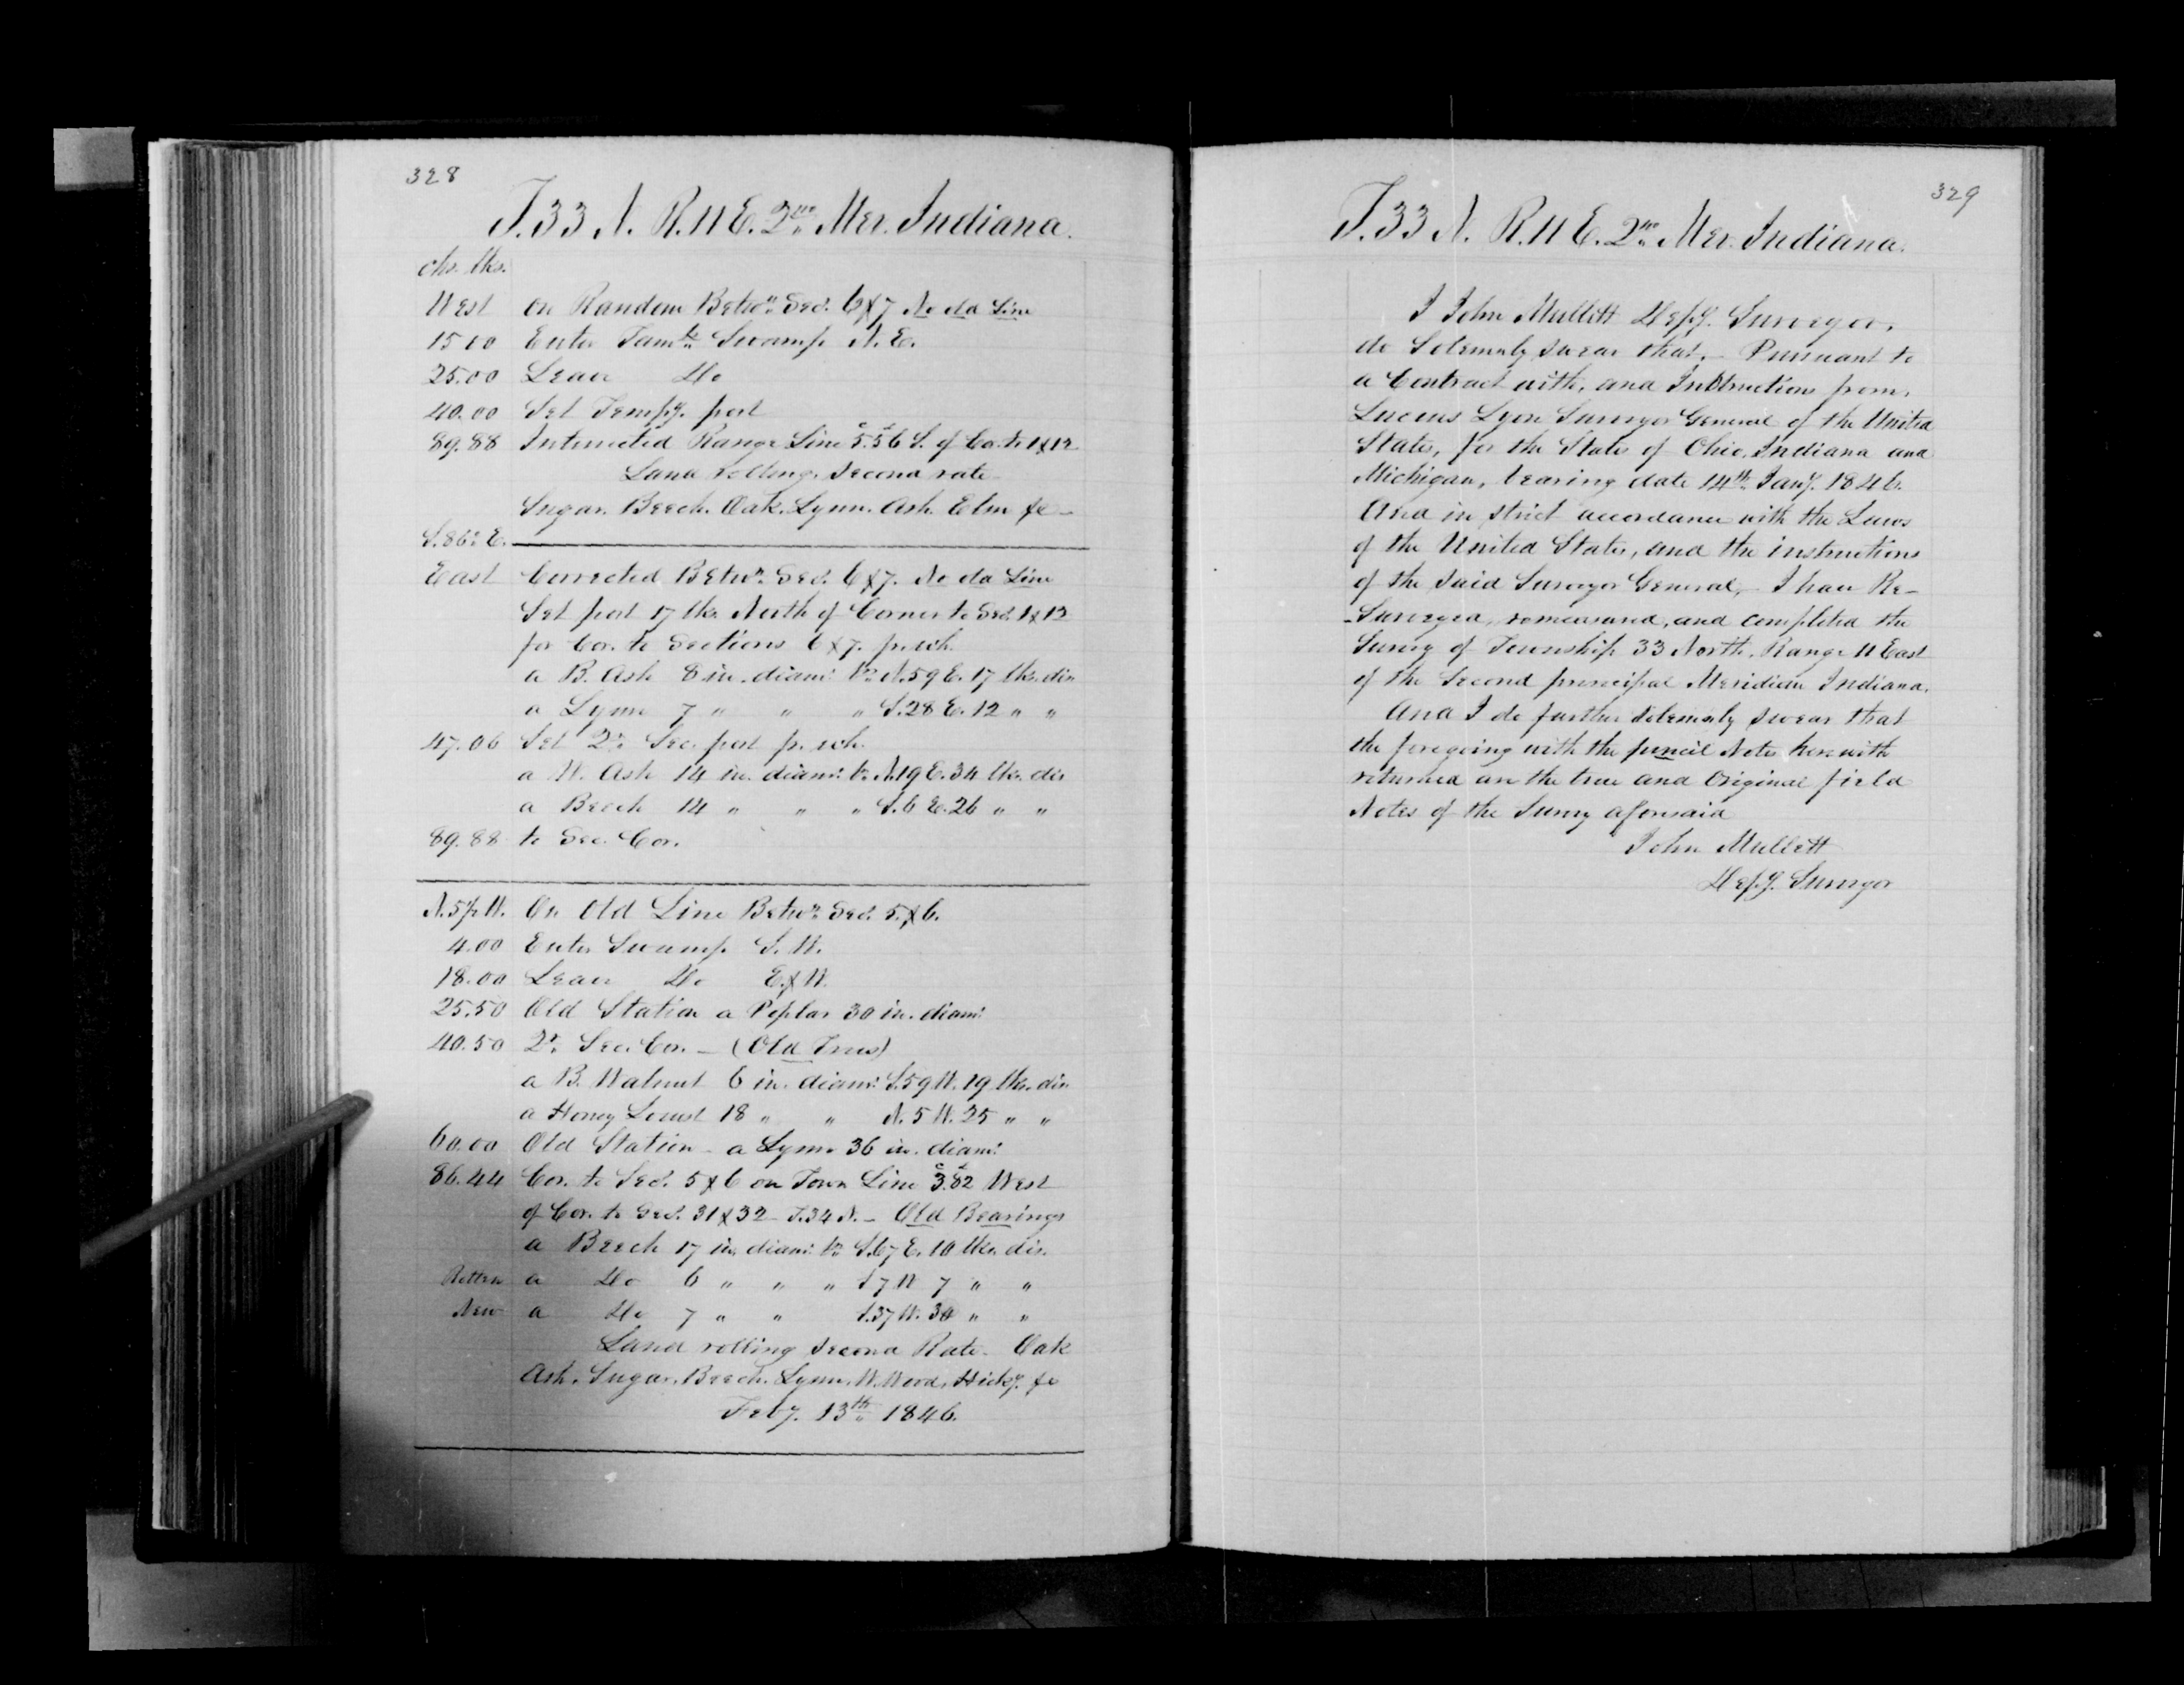 328
T. 33 N. R. 11 E. 2nd Mer. Indiana.
chs. lks.
West on Random Betwn Secs. 6 & 7 No old Line
15 00 Enter Tamk Swamp N. E.
25.00 Leave Do
40.00 Set Tempy. post
89.88 Intersected Range Line 5.56 S. of Cor. to 1 & 12
Land rolling, Second rate
Sugar. Beech. Oak. Lynn. Ash. Elm &c
S. 86° E.
East Corrected Betwn. Secs. 6 & 7. No old Line
Set post 17 lks. North of Corner to Secs. 1 & 12
for Cor. to Sections 6 & 7. fr. wh.
a B. Ash 8 in. diam: br. N. 59 E. 17 lks. dis
a Lynn 7 " " " S. 28 E. 12 " "
47.06 Set Qr. Sec. post fr. wh.
a W. Ash 14 in. diam: br. N. 19 E. 34 lks. dis
a Beech 14 " " " S. 6 E. 26 " "
89.88 to Sec. Cor.
N. 5½ W. On Old Line Betwn. Secs. 5. & 6.
4.00 Enter Swamp S. W.
18.00 Leave Do E. & W.
25.50 Old Station a Poplar 30 in. diam:
40.50 Qr. Sec. Cor. — (Old Trees)
a B. Walnut 6 in. diam: S. 59 W. 19 lks. dis
a Honey Locust 18 " " N. 5 W. 25 " "
60.00 Old Station - a Lynn 36 in. diam:
86.44 Cor. to Secs. 5 & 6 on Town Line 3.82 West
of Cor. to Secs. 31 & 32 T. 34 N. — Old Bearings
a Beech 17 in. diam: br. S. 67 E. 10 lks. dis.
Rotten a Do 6 " " " S 7 W 7 " "
New a Do 7 " " S. 37 W. 34 " "
Land rolling second Rate. Oak
Ash. Sugar. Beech. Lynn. W. Wood. Hicky. &c
Feby. 13th 1846.
329
T. 33 N. R. 11 E. 2nd Mer. Indiana.
I John Mullett Depy. Surveyor,
do Solemnly swear that, — Pursuant to
a Contract with, and Instructions from,
Lucius Lyon Surveyor General of the United
States, for the States of Ohio, Indiana and
Michigan, bearing date 14th Jany. 1846.
And in strict accordance with the Laws
of the United States, and the instructions
of the said Surveyor General, — I have Re-
-Surveyed, remeasured, and completed the
Survey of Township 33 North, Range 11 East
of the Second principal Meridian Indiana.
And I do further solemnly swear that
the foregoing with the pencil Notes herewith
returned are the true and Original field
Notes of the Survey aforesaid
John Mullett
Depy. Surveyor